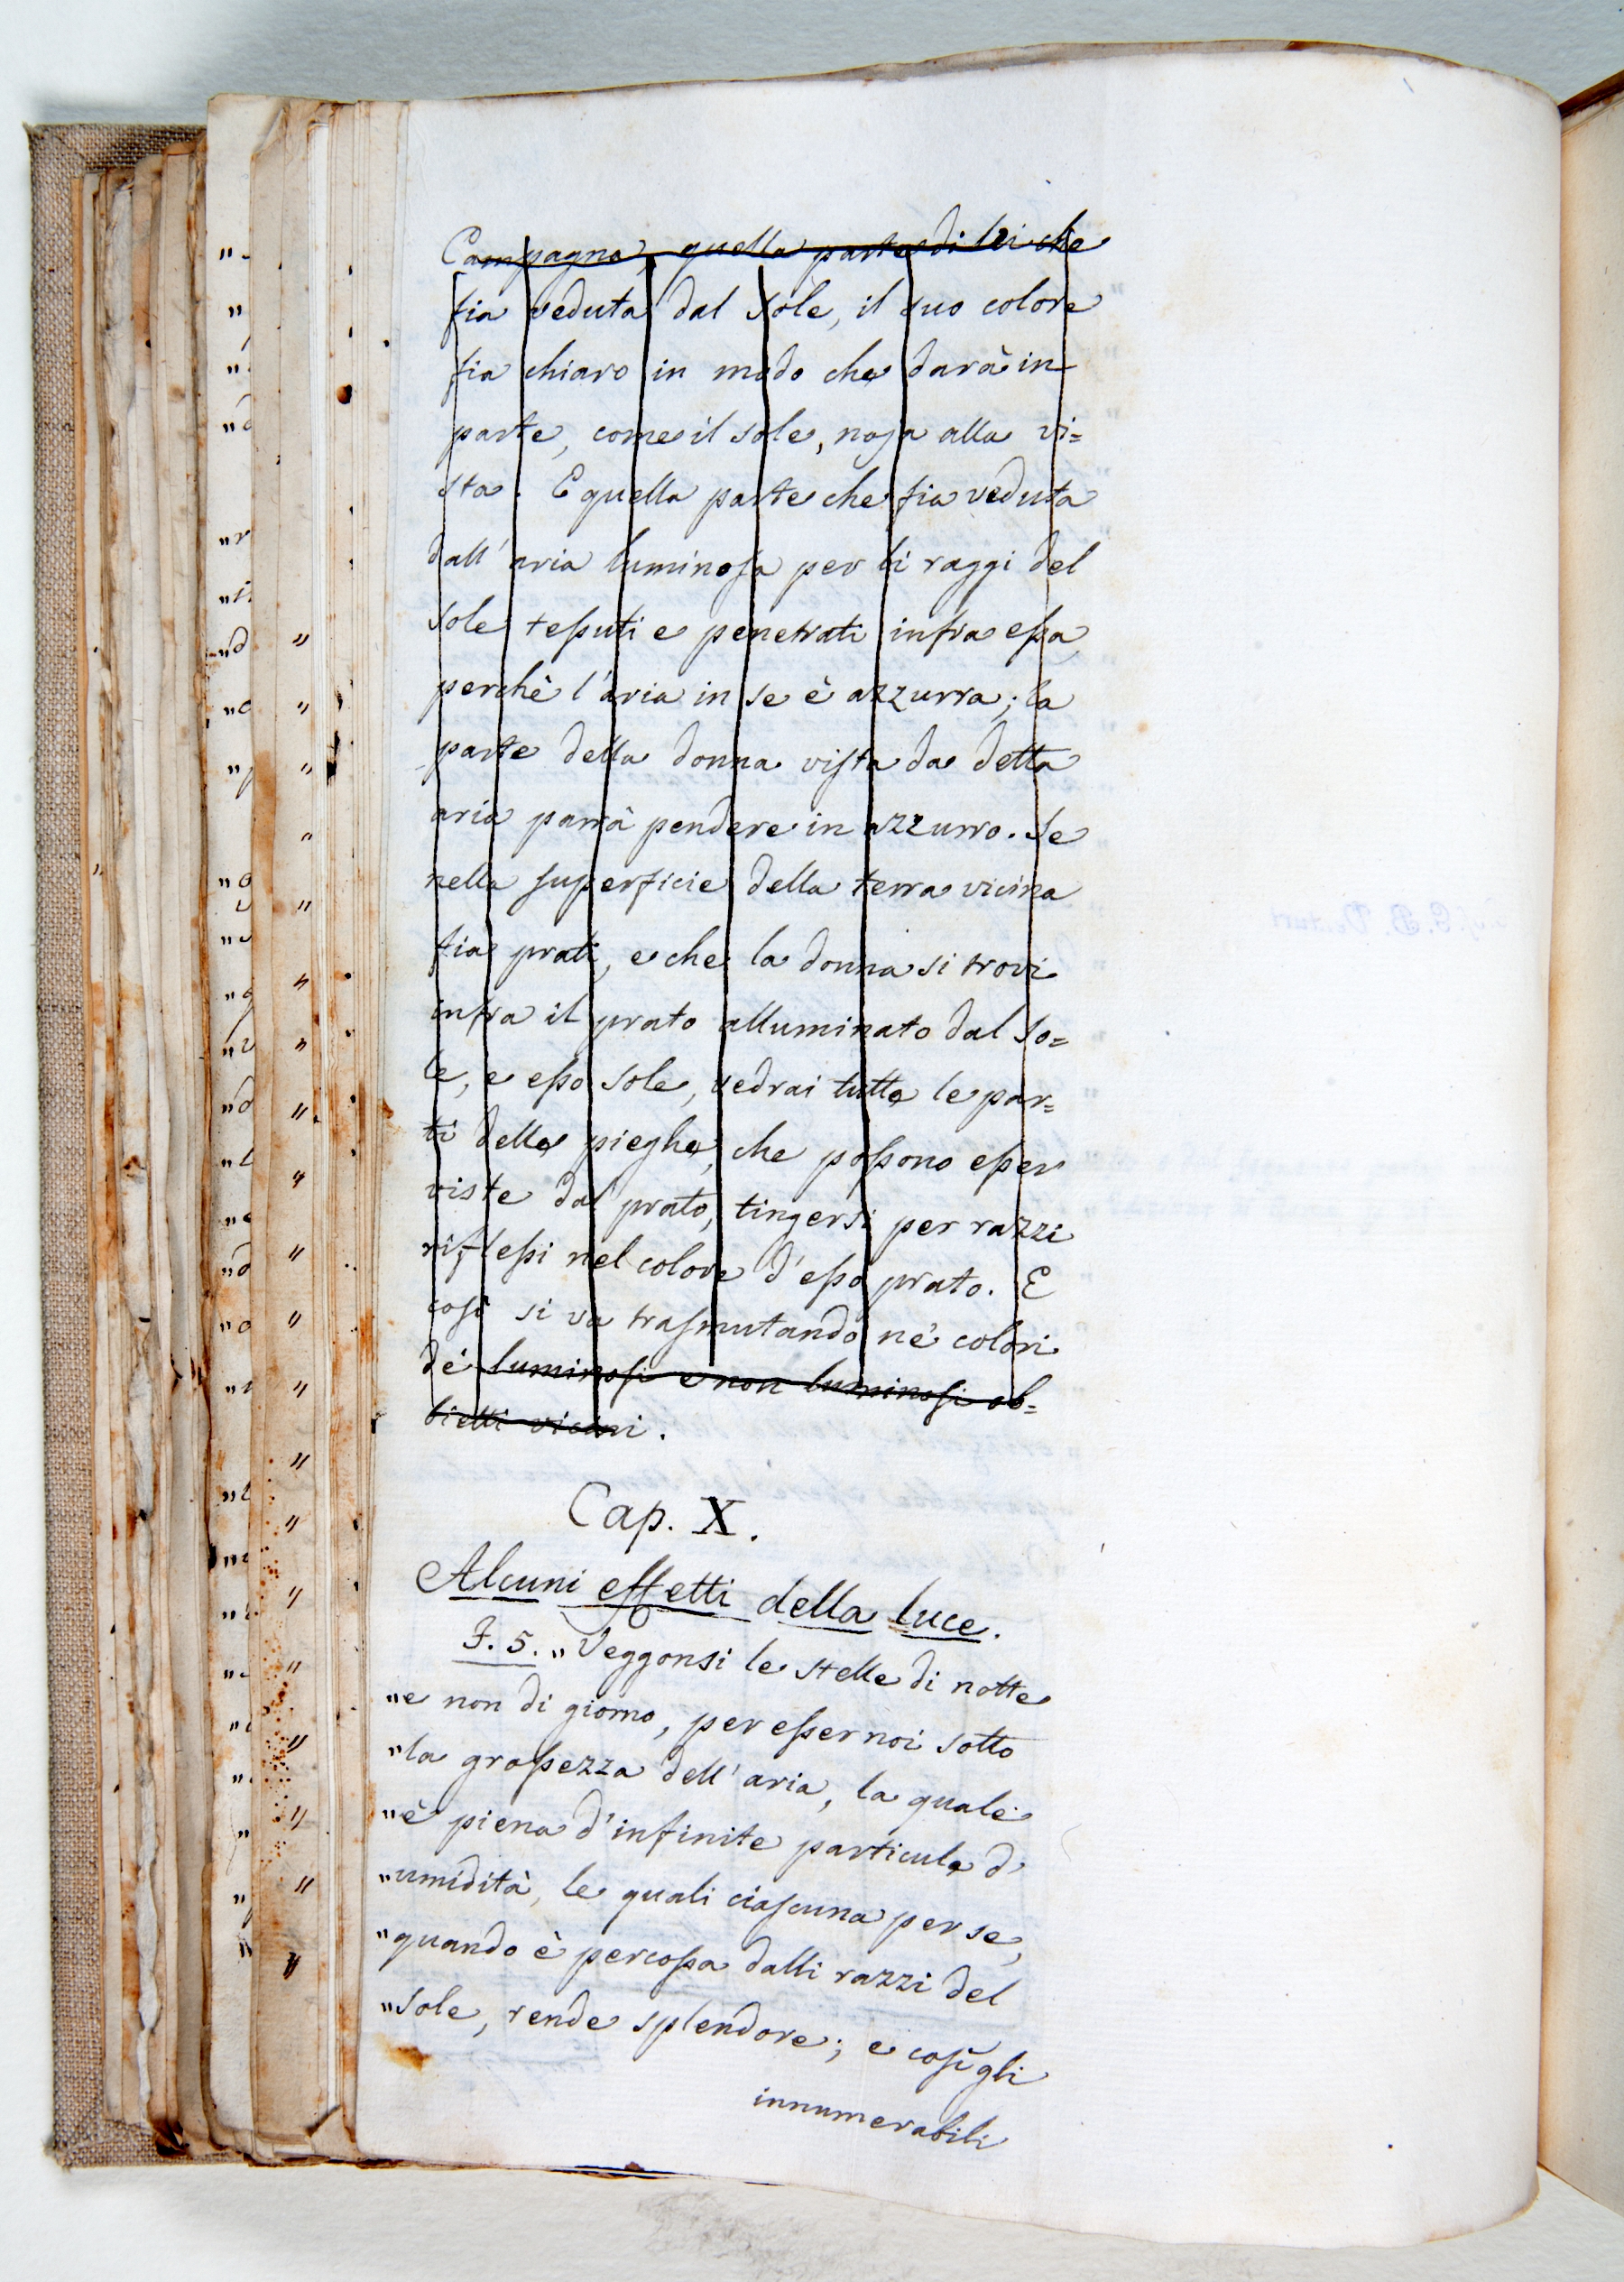 Campagna, quella parte di lei che
fia veduta dal sole, il suo colore
fia chiaro in modo che darà in
parte, come il sole, noja alla vi=
sta. E quella parte che fia veduta
dall'aria luminosa per li raggi del
sole tessuti e penetrati infra essa,
perchè l'aria in se è azzurra; la
parte della donna vista da detta
aria parrà pendere in azzurro. Se
nella superficie della terra vicina
fia prati, e che la donna si trovi
infra il prato alluminato dal so=
le, e esso sole, vedrai tutte le par=
ti delle pieghe, che possono esser
viste dal prato, tingersi per razzi
riflessi nel colore d'esso prato. E
così si va trasmutando ne' colori
de' luminosi e non luminosi ob=
bietti vicini.
Cap. X.
Alcuni effetti della luce.
F. 5. „Veggonsi le stelle di notte
„e non di giorno, per esser noi sotto
„la grossezza dell'aria, la quale
„è piena d'infinite particule d'
„umidità, le quali ciascuna per se,
„quando è percossa dalli razzi del
„sole, rende splendore; e così gli
innumerabili